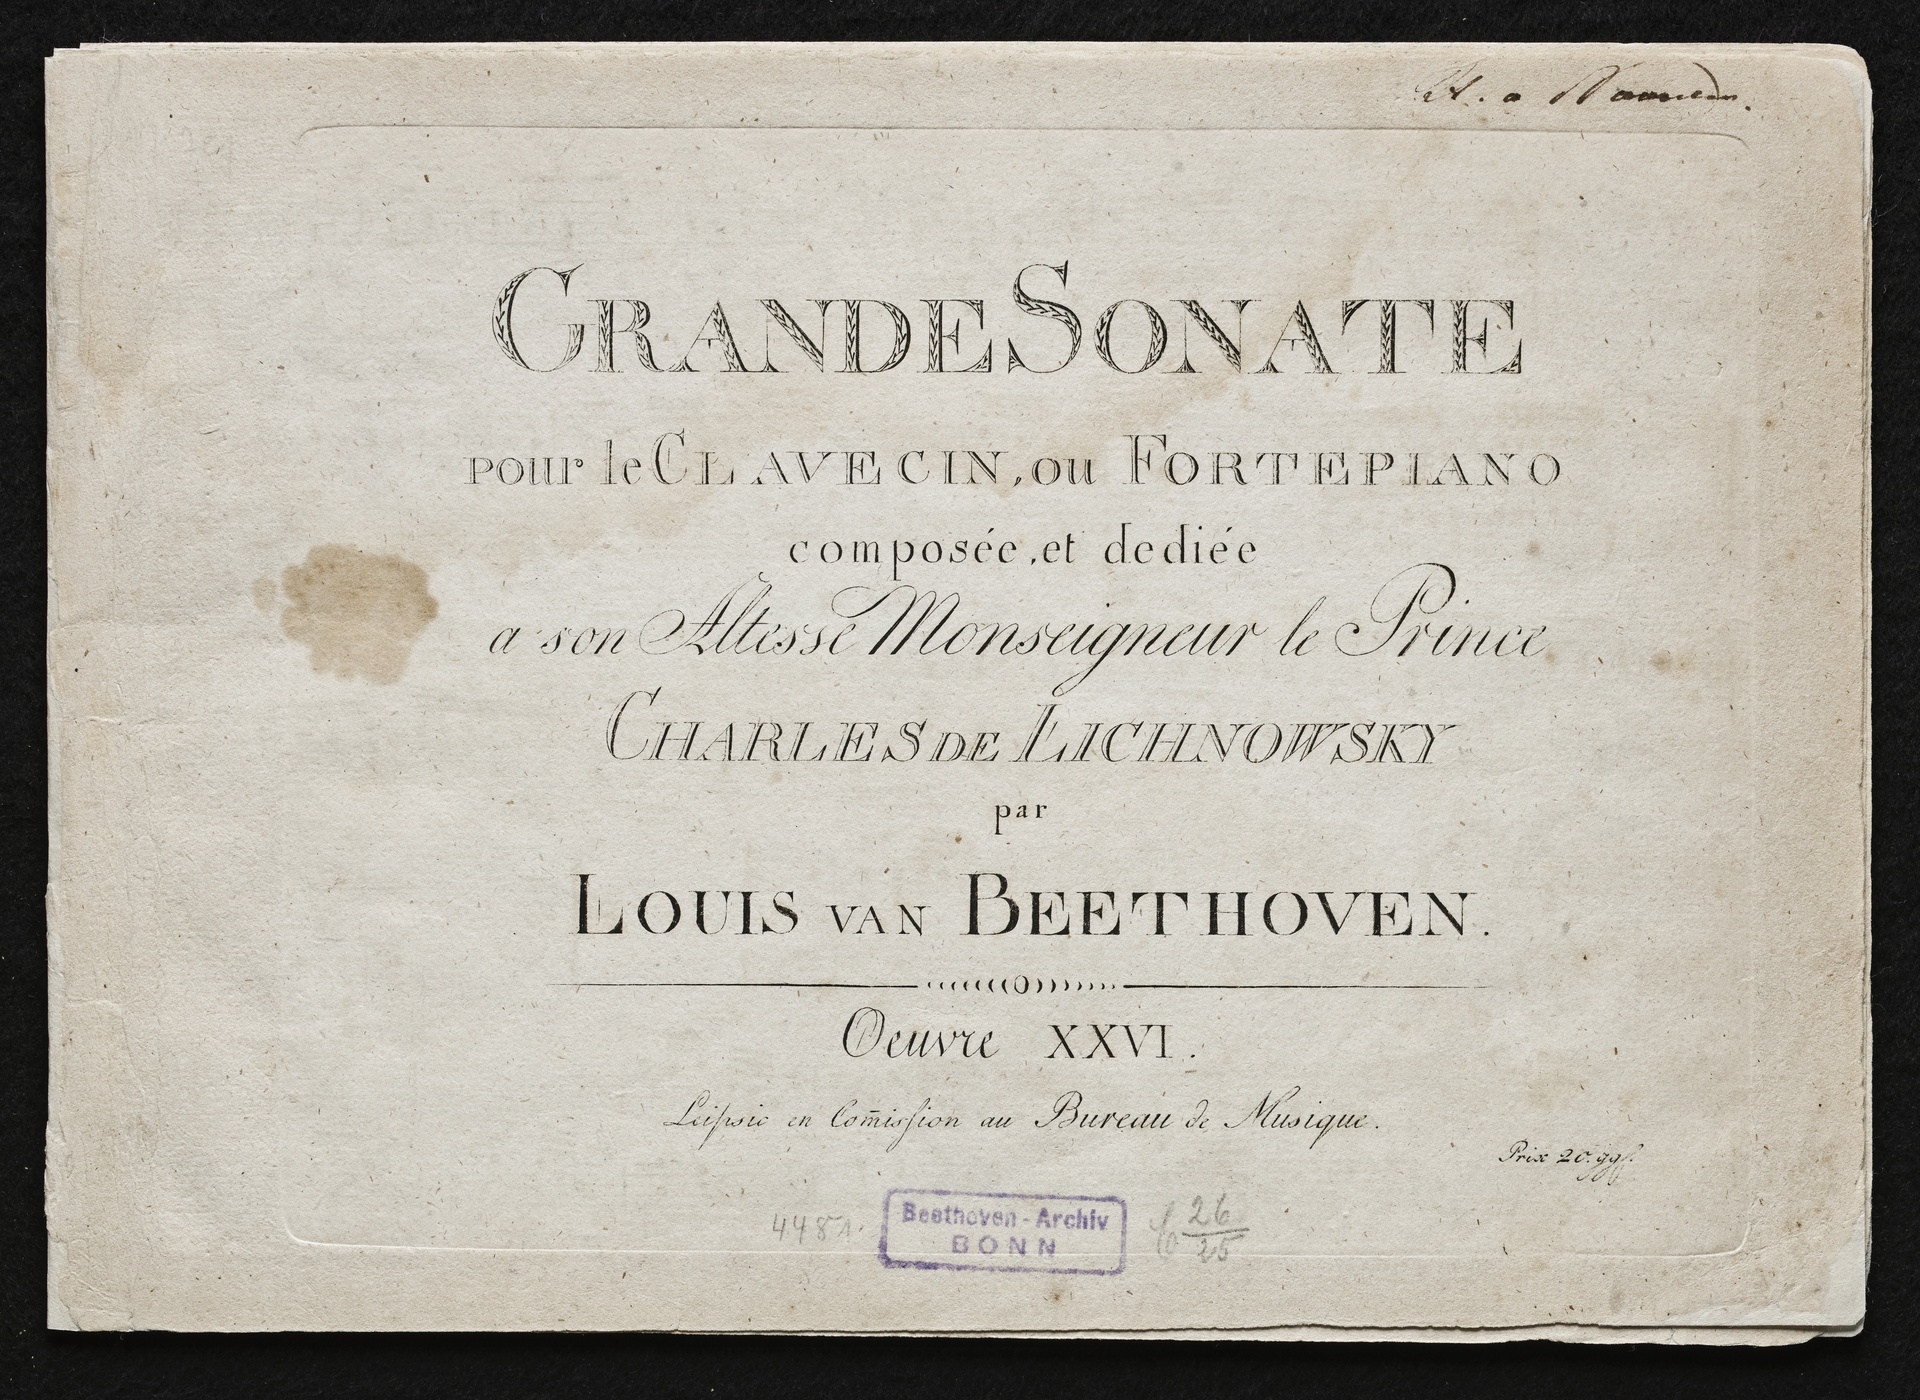 GRANDE SONATE
pour le CLAVECIN, ou FORTEPIANO
composée, et dediée
a son Altesse Monseigneur le Prince
CHARLES DE LICHNOWSKY
par
LOUIS VAN BEETHOVEN.
Oeuvre XXVI.
Leipsic en Com̄ißion au Bureau de Musique.
Prix 20. ggſ.
4481.
Beethoven-Archiv
BONN
26
25